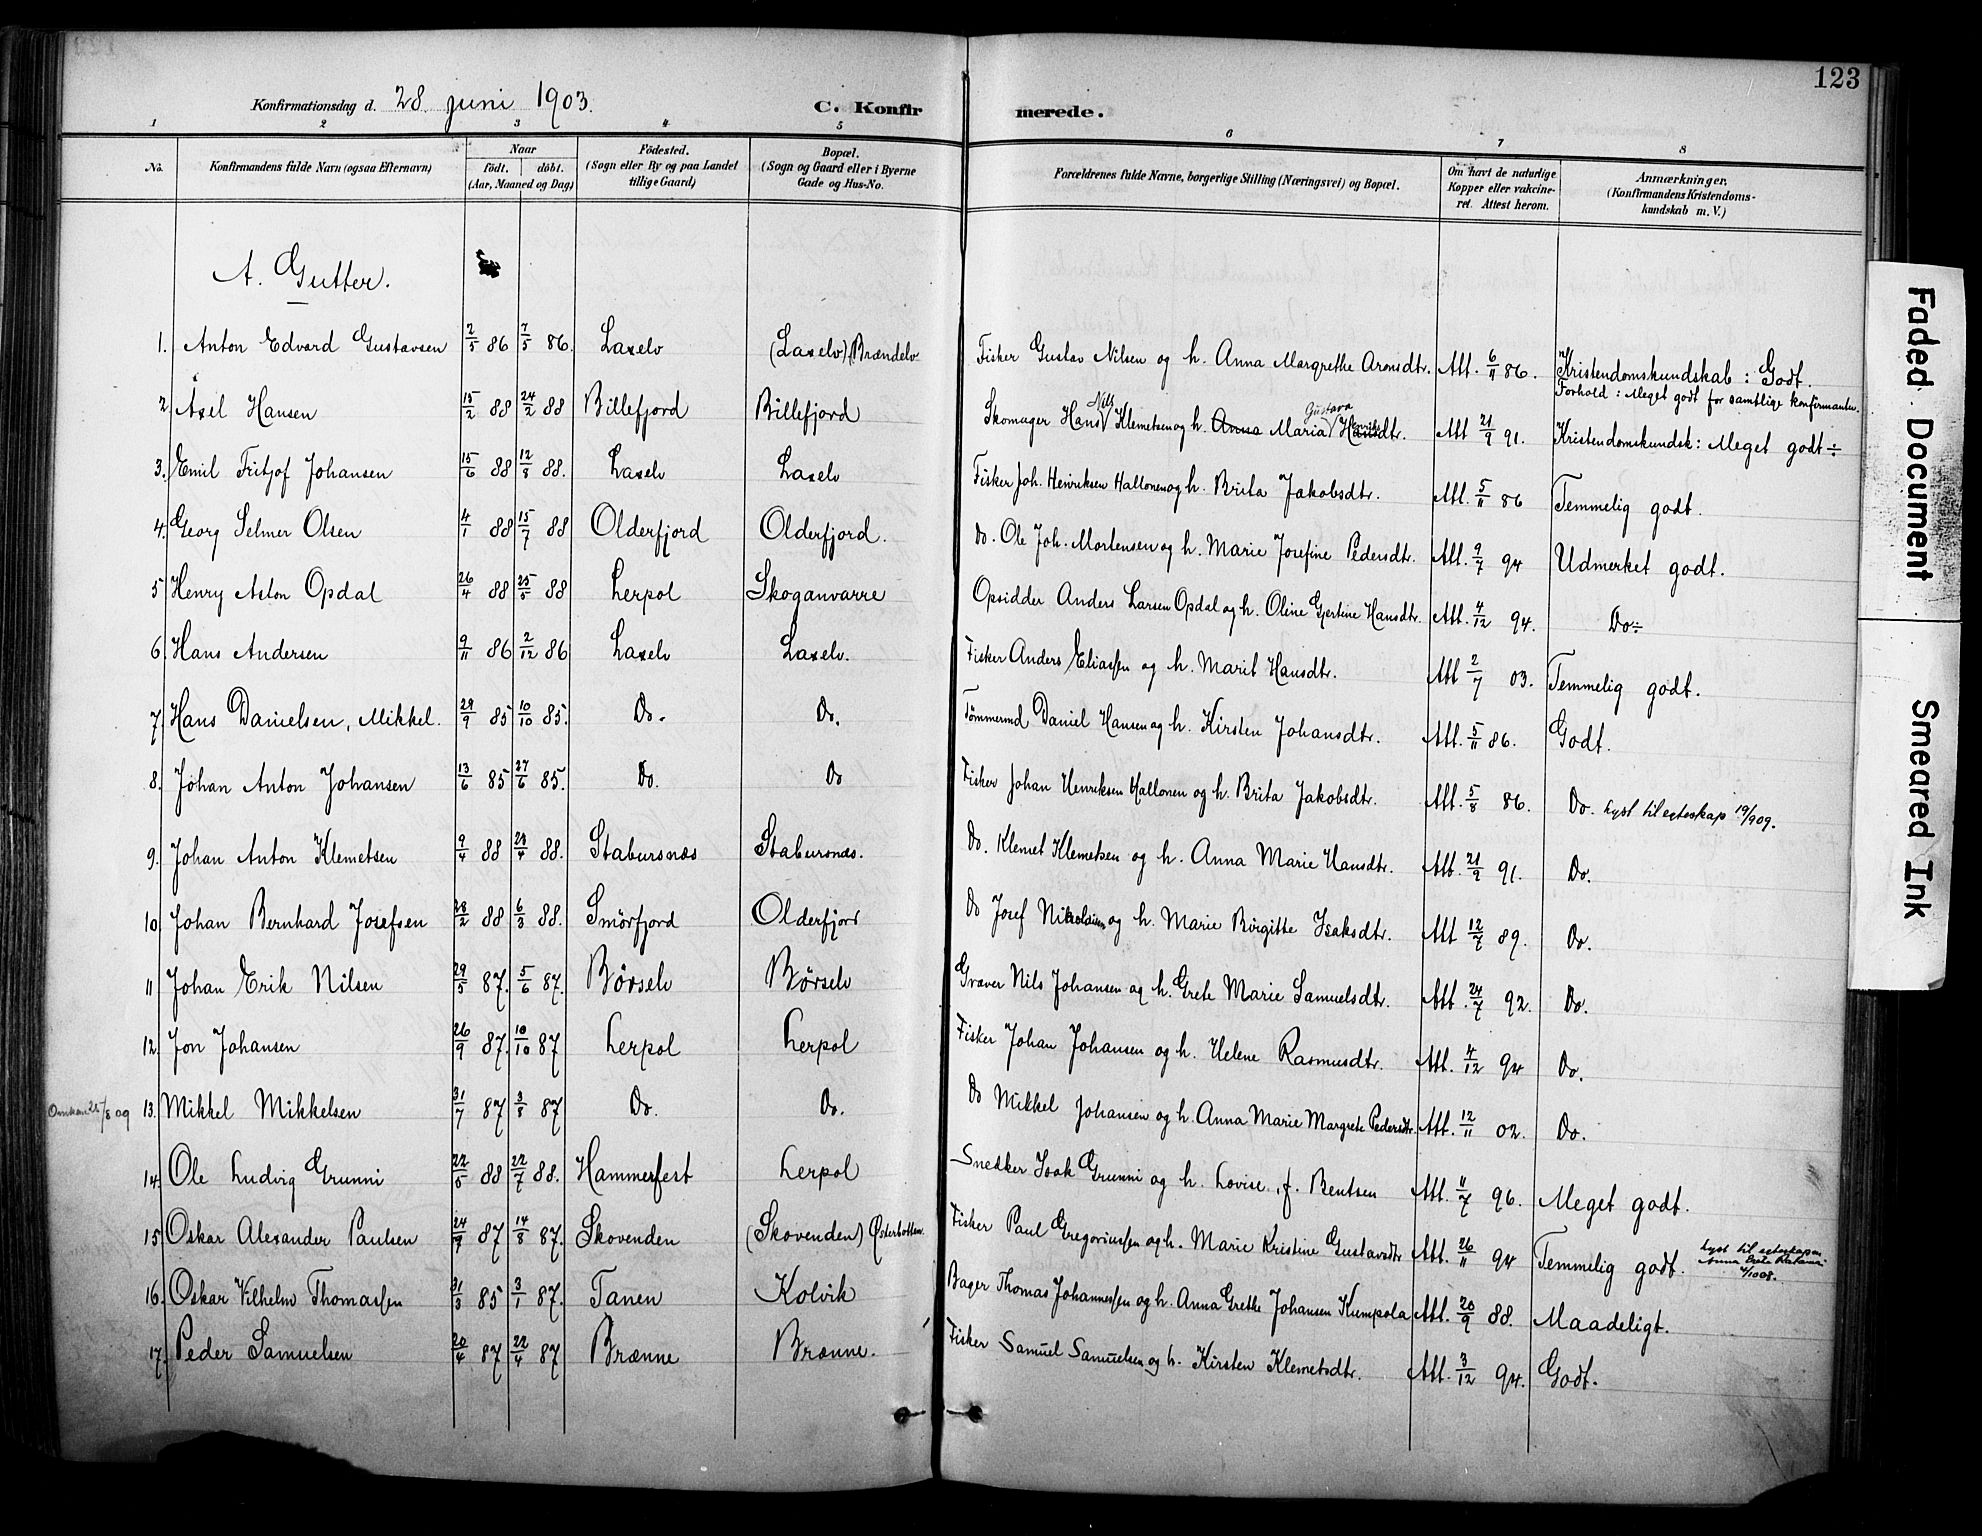 123
Konfirmationsdag d. 28. juni 1903.
C. Konfirmerede.
1 2 3 4 5 6 7 8
No. Konfirmandens fulde Navn (ogsaa Efternavn) Naar födt. döbt. (Aar, Maaned og Dag) Födested. (Sogn eller By og paa Landet tillige Gaard) Bopæl. (Sogn og Gaard eller i Byerne Gade og Hus-No. Forældrenes fulde Navne, borgerlige Stilling (Næringsvei) og Bopæl. Om havt de naturlige Kopper eller vakcineret. Attest herom. Anmærkninger. (Konfirmandens Kristendomskundskab m. V.)
A. Gutter.
1. Anton Edvard Gustavsen 2/5 86 7/5 86. Laxelv (Laxelv) Brændelv Fisker Gustav Nilsen og h. Anna Margrethe Aronsdtr. Att. 6/11 86. Kristendomskundskab: Godt. Forhold: Meget godt for samtlige konfirmanter.
2. Axel Hansen 15/2 88 24/2 88 Billefjord Billefjord Skomager Hans Nils Klemetsen og h. Anna Maria Gustava Att 21/9 91. Kristendomskundsk: Meget godt ÷
3. Emil Fritjof Johansen 15/6 88 12/8 88. Laxelv Laxelv Fisker Joh. Henriksen Hallonen og h. Brita Jakobsdtr. Att. 5/11 86 Temmelig godt.
4. Georg Selmer Olsen 4/1 88 15/7 88 Olderfjord Olderfjord. Do. Ole Joh. Mortensen og h. Marie Josefine Pedersdtr. Att. 9/7 94 Udmerket godt.
5 Henry Aston Opdal 26/4 88 25/5 88 Lerpol Skoganvarre Opsidder Anders Larsen Opdal og h. Oline Gjertine Hansdtr. Att. 4/12 94. Do ÷
6. Hans Andersen 9/11 86 2/12 86 Laxelv Laxelv. Fisker Anders Eliassen og h. Marit Hansdtr. Att 2/7 03. Temmelig godt.
7. Hans Danielsen, Mikkel. 29/9 85 10/10 85. Do. Do. Tömmermd Daniel Hansen og h. Kirsten Johansdtr. Att. 5/11 86. Godt.
8. Johan Anton Johansen 13/6 85 27/6 85. Do. Do Fisker Johan Henriksen Hallonen og h. Brita Jakobsdtr. Att. 5/8 86. Do. Lyst til egteskap 19/9 09.
9. Johan Anton Klemetsen 9/4 88 28/4 88. Stabursnæs Stabursnæs. Do. Klemet Klemetsen og h. Anna Marie Hansdtr. Att. 21/9 91. Do.
10 Johan Bernhard Josefsen 28/2 88 6/3 88. Smörfjord Olderfjord Do Josef Nikolaisen og h. Marie Birgitte Isaksdtr. Att 12/7 89. Do.
11 Johan Erik Nilsen 29/5 87. 5/6 87. Børselv Børselv Graver Nils Johansen og h. Grete Marie Samuelsdtr. Att. 24/7 92. Do.
12. Jon Johansen 26/9 87. 10/10 87 Lerpol Lerpol Fisker Johan Johansen og h. Helene Rasmusdtr. Att. 4/12 94 Do.
13. Mikkel Mikkelsen 31/7 87 3/8 87 Do. Do. Do Mikkel Johansen og h. Anna Marie Margrete Pedersdtr. Att. 12/11 02. Do.
14. Ole Ludvig Grunni 22/5 88 22/7 88. Hammerfest Lerpol Snedker Isak Grunni og h. Lovise, f. Bentsen Att. 11/7 96. Meget godt.
15 Oskar Alexander Paulsen 24/7 87 14/8 87. Skovenden (Skovenden) Østerbotten. Fisker Paul Gregoriussen og h. Marie Kristine Gustavsdtr Att. 26/11 94 Temmelig godt. Lyst til egteskap
16. Oskar Vilhelm Thomassen 31/3 85 3/1 87. Tanen Kolvik Bager Thomas Johannessen og h. Anna Grethe Johansen Kumpola Att. 20/9 88. Maadeligt.
17. Peder Samuelsen 20/4 87 22/4 87 Brænne Brænne. Fisker Samuel Samuelsen og h. Kirsten Klemetsdtr. Att. 3/12 94. Godt.
Faded Document
Smeared Ink